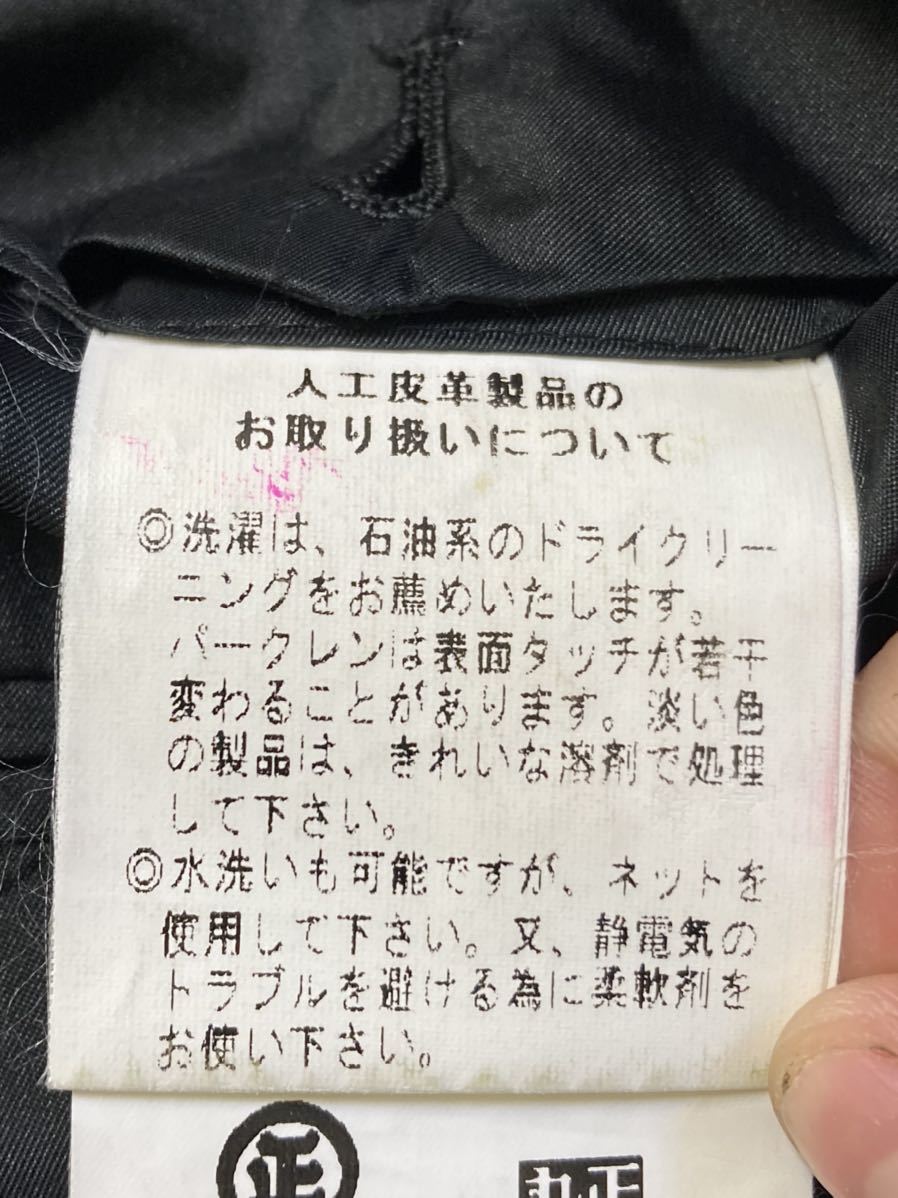 人工皮革製品の
お取り扱いについて
◎洗濯は、石油系のドライクリー
ニングをお薦めいたします。
パークレンは表面タッチが若干
変わることがあります。淡い色
の製品は、きれいな溶剤で処理
して下さい。
◎水洗いも可能ですが、ネットを
使用して下さい。又、静電気の
トラブルを避ける為に柔軟剤を
お使い下さい。
正
丸正